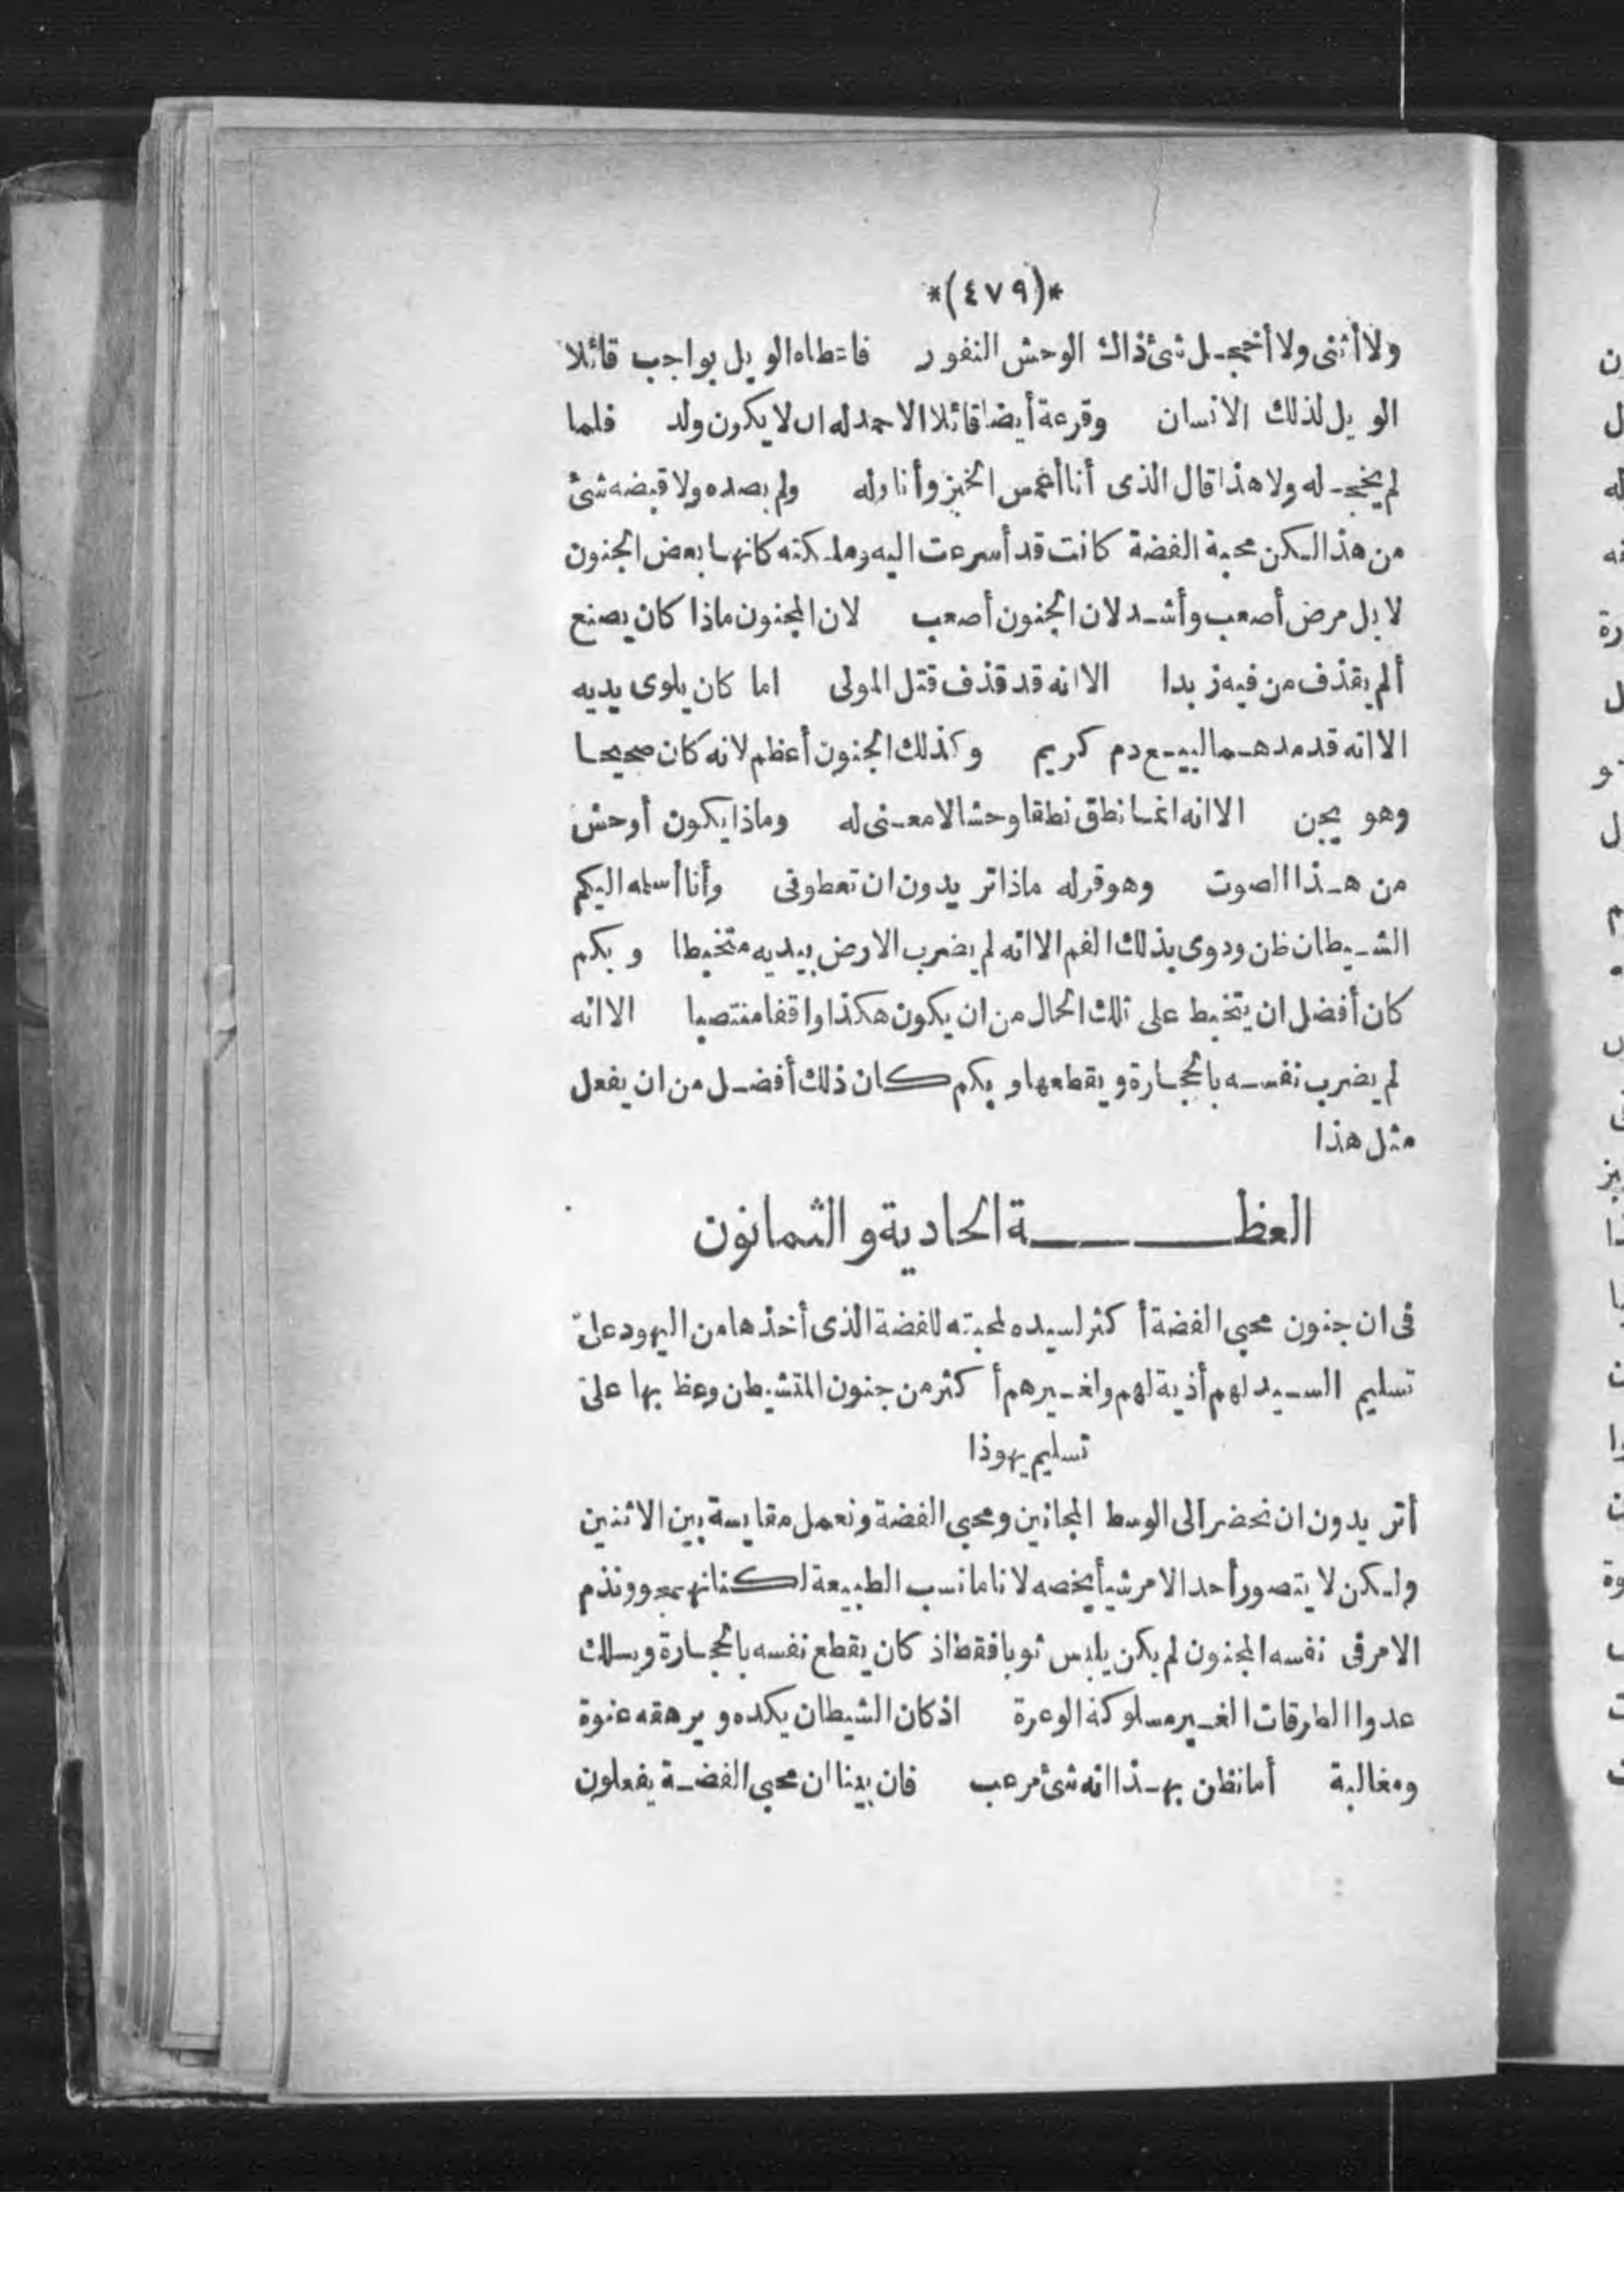 *(٤٧٩)*
ولا أثنى ولا أخجل شئ ذاك الوحش النفور فاعطاه الويل بواجب قائلا
الويل لذلك الانسان وقرعة أيضا قائلا الاحمد له ان لا يكون ولد فلما
لم يخجله ولا هذا قال الذى أنا أغمس الخبز وأناوله ولم يصده ولا قبضه شئ
من هذا لكن محبة الفضة كانت قد أسرعت اليه وملكته كانها بعض الجنون
لا بل مرض أصعب وأشد لان الجنون أصعب لان المجنون ماذا كان يصنع
ألم يقذف من فيه زبدا الا انه قد قذف قتل المولى اما كان يلوى يديه
الا انه قد مدهما لبيع دم كريم وكذلك الجنون أعظم لانه كان صحيحا
وهو يجن الا انه انما نطق نطقا وحشا لا معنى له وماذا يكون أوحش
من هذا الصوت وهو قوله ماذا تريدون ان تعطونى وأنا أسلمه اليكم
الشيطان ظن ودوى بذلك الفم الا انه لم يضرب الارض بيديه متخبطا وبكم
كان أفضل ان يتخبط على تلك الحال من ان يكون هكذا واقفا منتصبا الا انه
لم يضرب نفسه بالحجارة ويقطعها وبكم كان ذلك أفضل من ان يفعل
مثل هذا
العظة الحادية والثمانون
فى ان جنون محبى الفضة أكثر لسيده لمحبته للفضة الذى أخذها من اليهود على
تسليم السيد لهم أذية لهم ولغيرهم أكثر من جنون المتشيطن وعظ بها على
تسليم يهوذا
أتريدون ان نحضر الى الوسط المجانين ومحبى الفضة ونعمل مقايسة بين الاثنين
ولكن لا يتصور أحد الامر شيأ يخصه لانا ما نسب الطبيعة لكنا نهجو ونذم
الامر فى نفسه المجنون لم يكن يلبس ثوبا فقط اذ كان يقطع نفسه بالحجارة ويسلك
عدوا الطرقات الغير مسلوكة الوعرة اذ كان الشيطان يكده ويرهقه عنوة
ومغالبة أما نظن بهذا انه شئ مرعب فان بينا ان محبى الفضة يفعلون